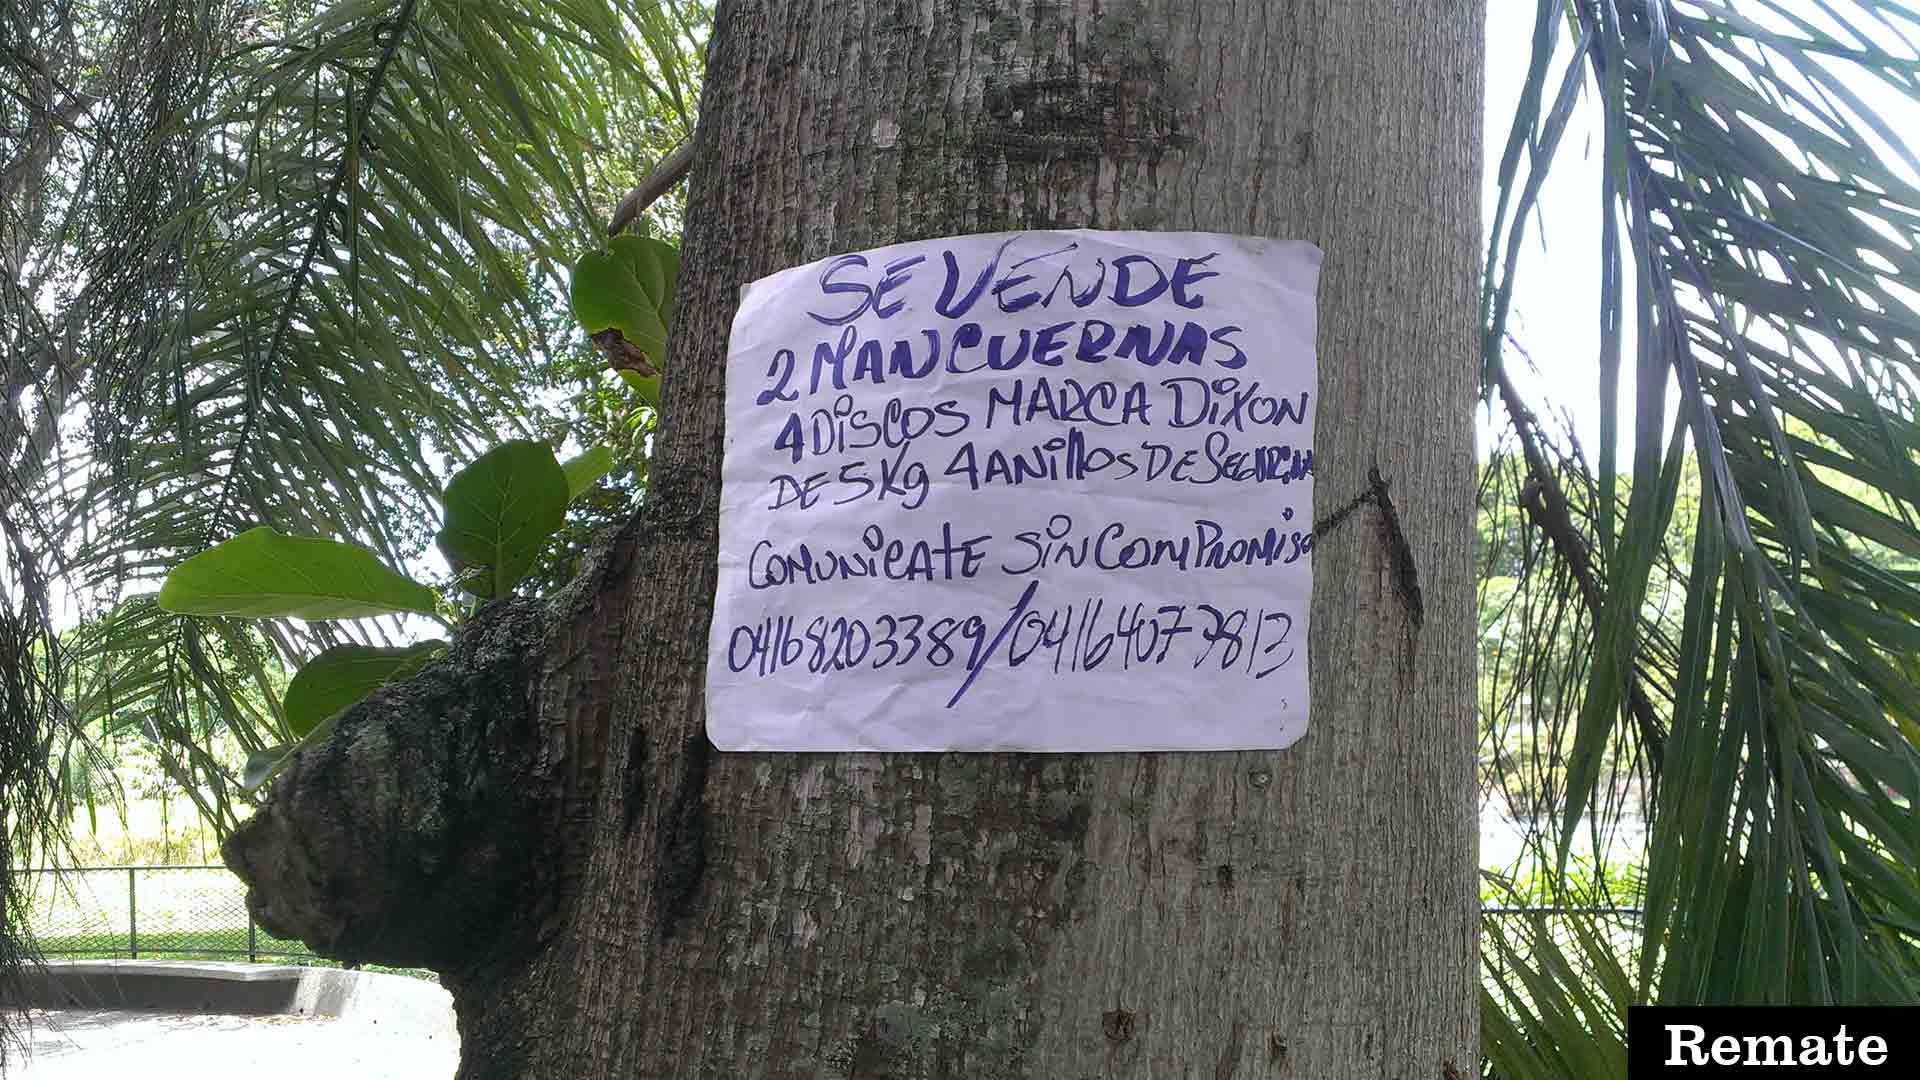 SE VENDE
2 MANCUERNAS
4 DiSCOS MARCA DiXON
DE 5 Kg 4 ANillos DE SEGURiDAD
COMUNiCATE SiN COMPROMiSO
04168203389/04164073813
Remate